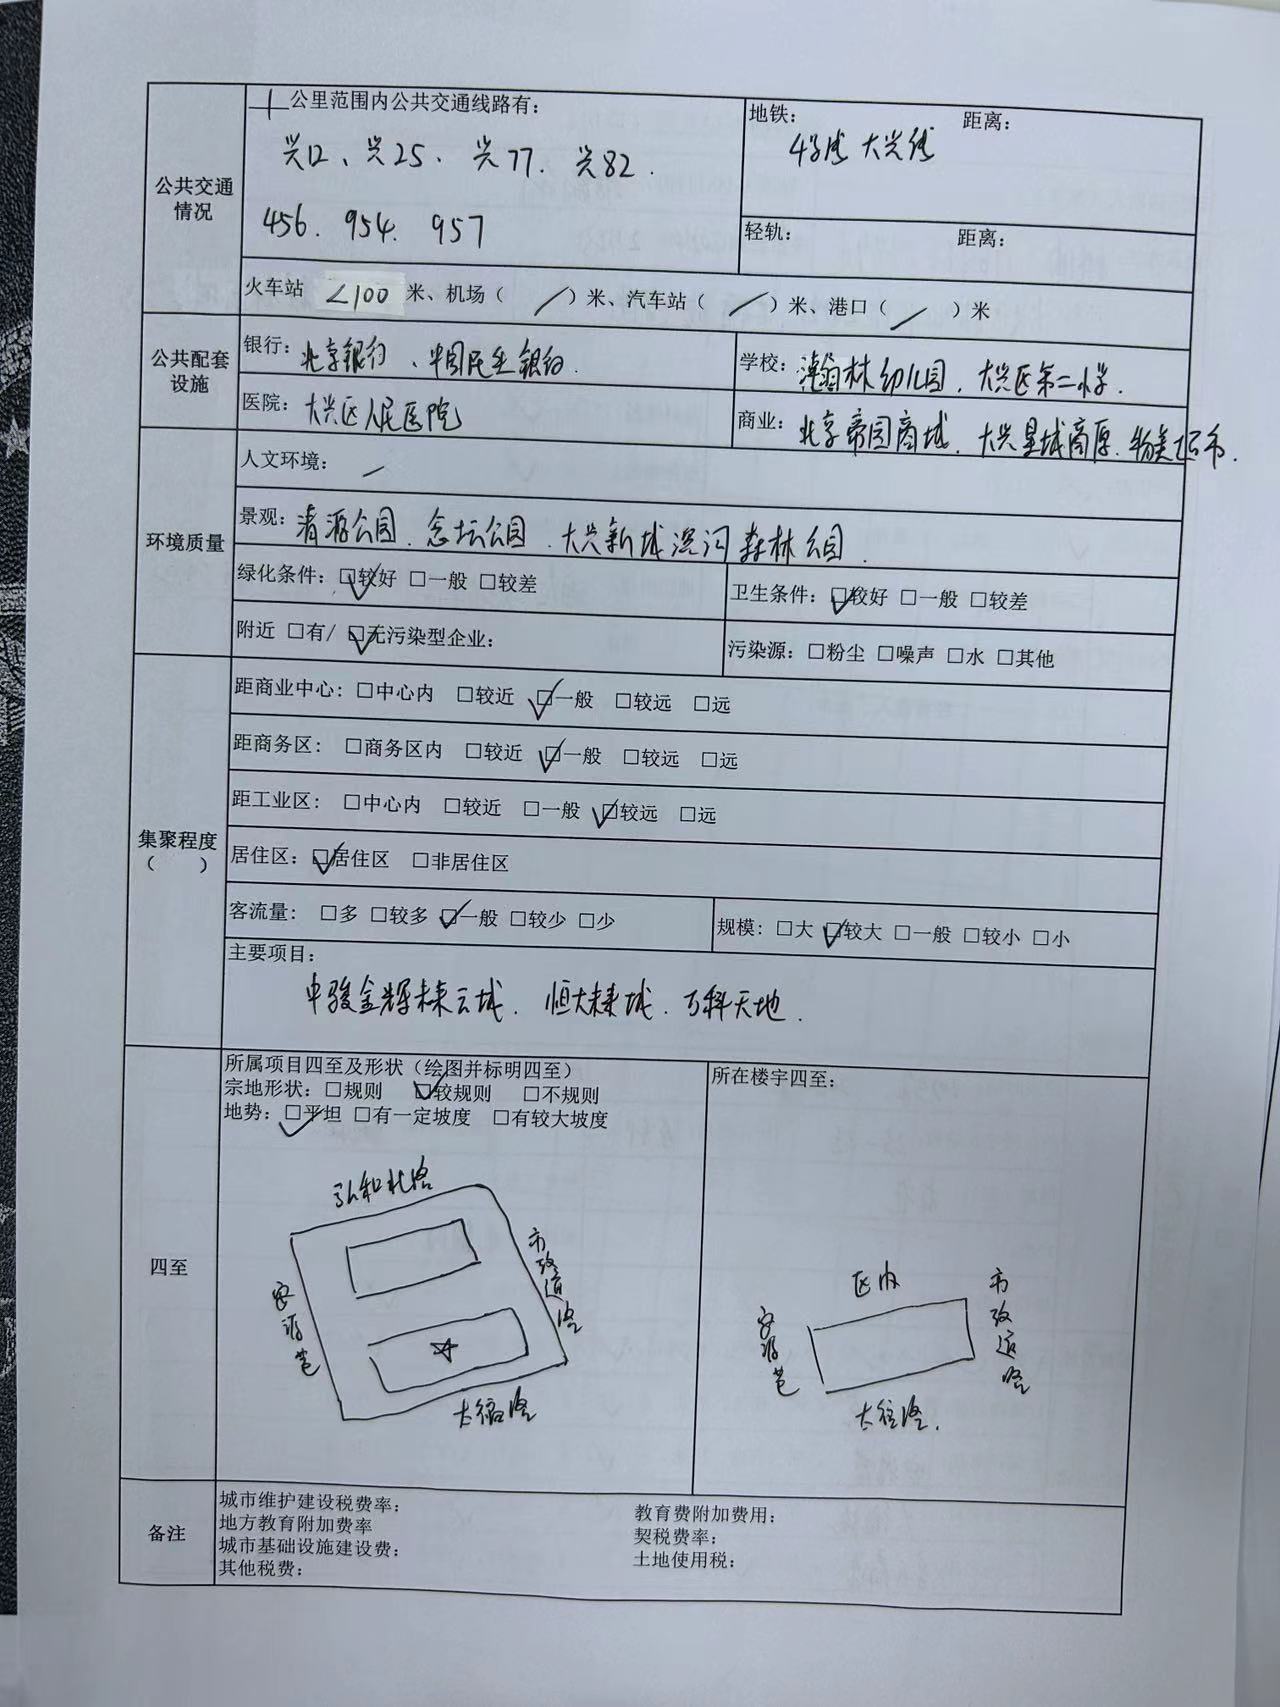 一公里范围内公共交通线路有：
兴12、兴25、兴77、兴82.
456. 954. 957
地铁： 距离：
4号线 大兴线
公共交通
情况
轻轨： 距离：
火车站 <100 米、机场（ / ）米、汽车站（ / ）米、港口（ / ）米
公共配套
设施
银行：北京银行、中国民生银行.
学校：瀚林幼儿园、大兴区第二小学.
医院：大兴区人民医院
商业：北京帝园商城、大兴星城商厦、物美超市.
环境质量
人文环境： /
景观：清源公园、念坛公园、大兴新城滨河森林公园.
绿化条件：☑较好 □一般 □较差
卫生条件：☑较好 □一般 □较差
附近 □有/ ☑无污染型企业：
污染源：□粉尘 □噪声 □水 □其他
集聚程度
（ ）
距商业中心：□中心内 □较近 ☑一般 □较远 □远
距商务区：□商务区内 □较近 ☑一般 □较远 □远
距工业区：□中心内 □较近 □一般 ☑较远 □远
居住区：☑居住区 □非居住区
客流量：□多 □较多 ☑一般 □较少 □少
规模：□大 ☑较大 □一般 □较小 □小
主要项目：
中骏金辉未来云城. 恒大未来城. 万科天地.
四至
所属项目四至及形状（绘图并标明四至）
宗地形状：□规则 ☑较规则 □不规则
地势：☑平坦 □有一定坡度 □有较大坡度
弘和北路
市政道路
所在楼宇四至：
区内
市政道路
备注
城市维护建设税费率：
地方教育附加费率
城市基础设施建设费：
其他税费：
教育费附加费用：
契税费率：
土地使用税：